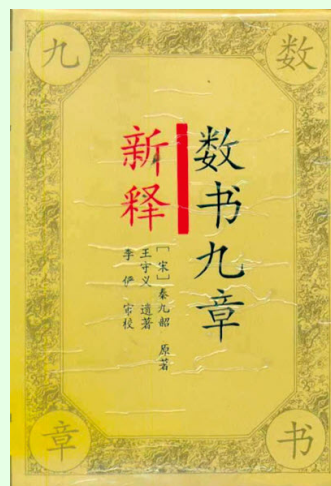 数
九
数书九章
新释
[宋]秦九韶 原著
王守义 遗著
李俨 审校
书
章